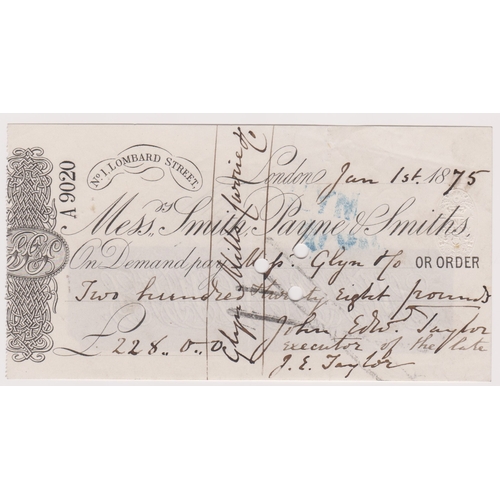 A 9020
No. 1, LOMBARD STREET,
London Jan 1st. 1875
Messrs. Smith, Payne & Smiths,
On Demand pay Messrs. Glyn & Co OR ORDER
Two hundred twenty Eight pounds
£ 228.0.0
John Edwd. Taylor
executor of the late
J. E. Taylor
Glyn & Mills Currie & Co